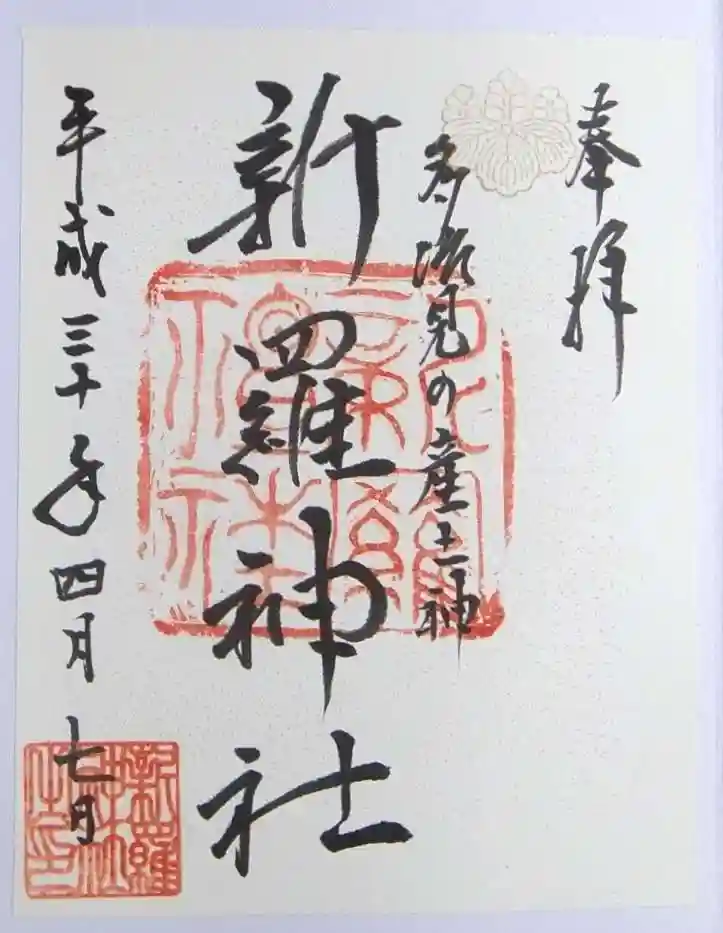 奉拝
多治見の産土神
新羅神社
平成三十年四月七日